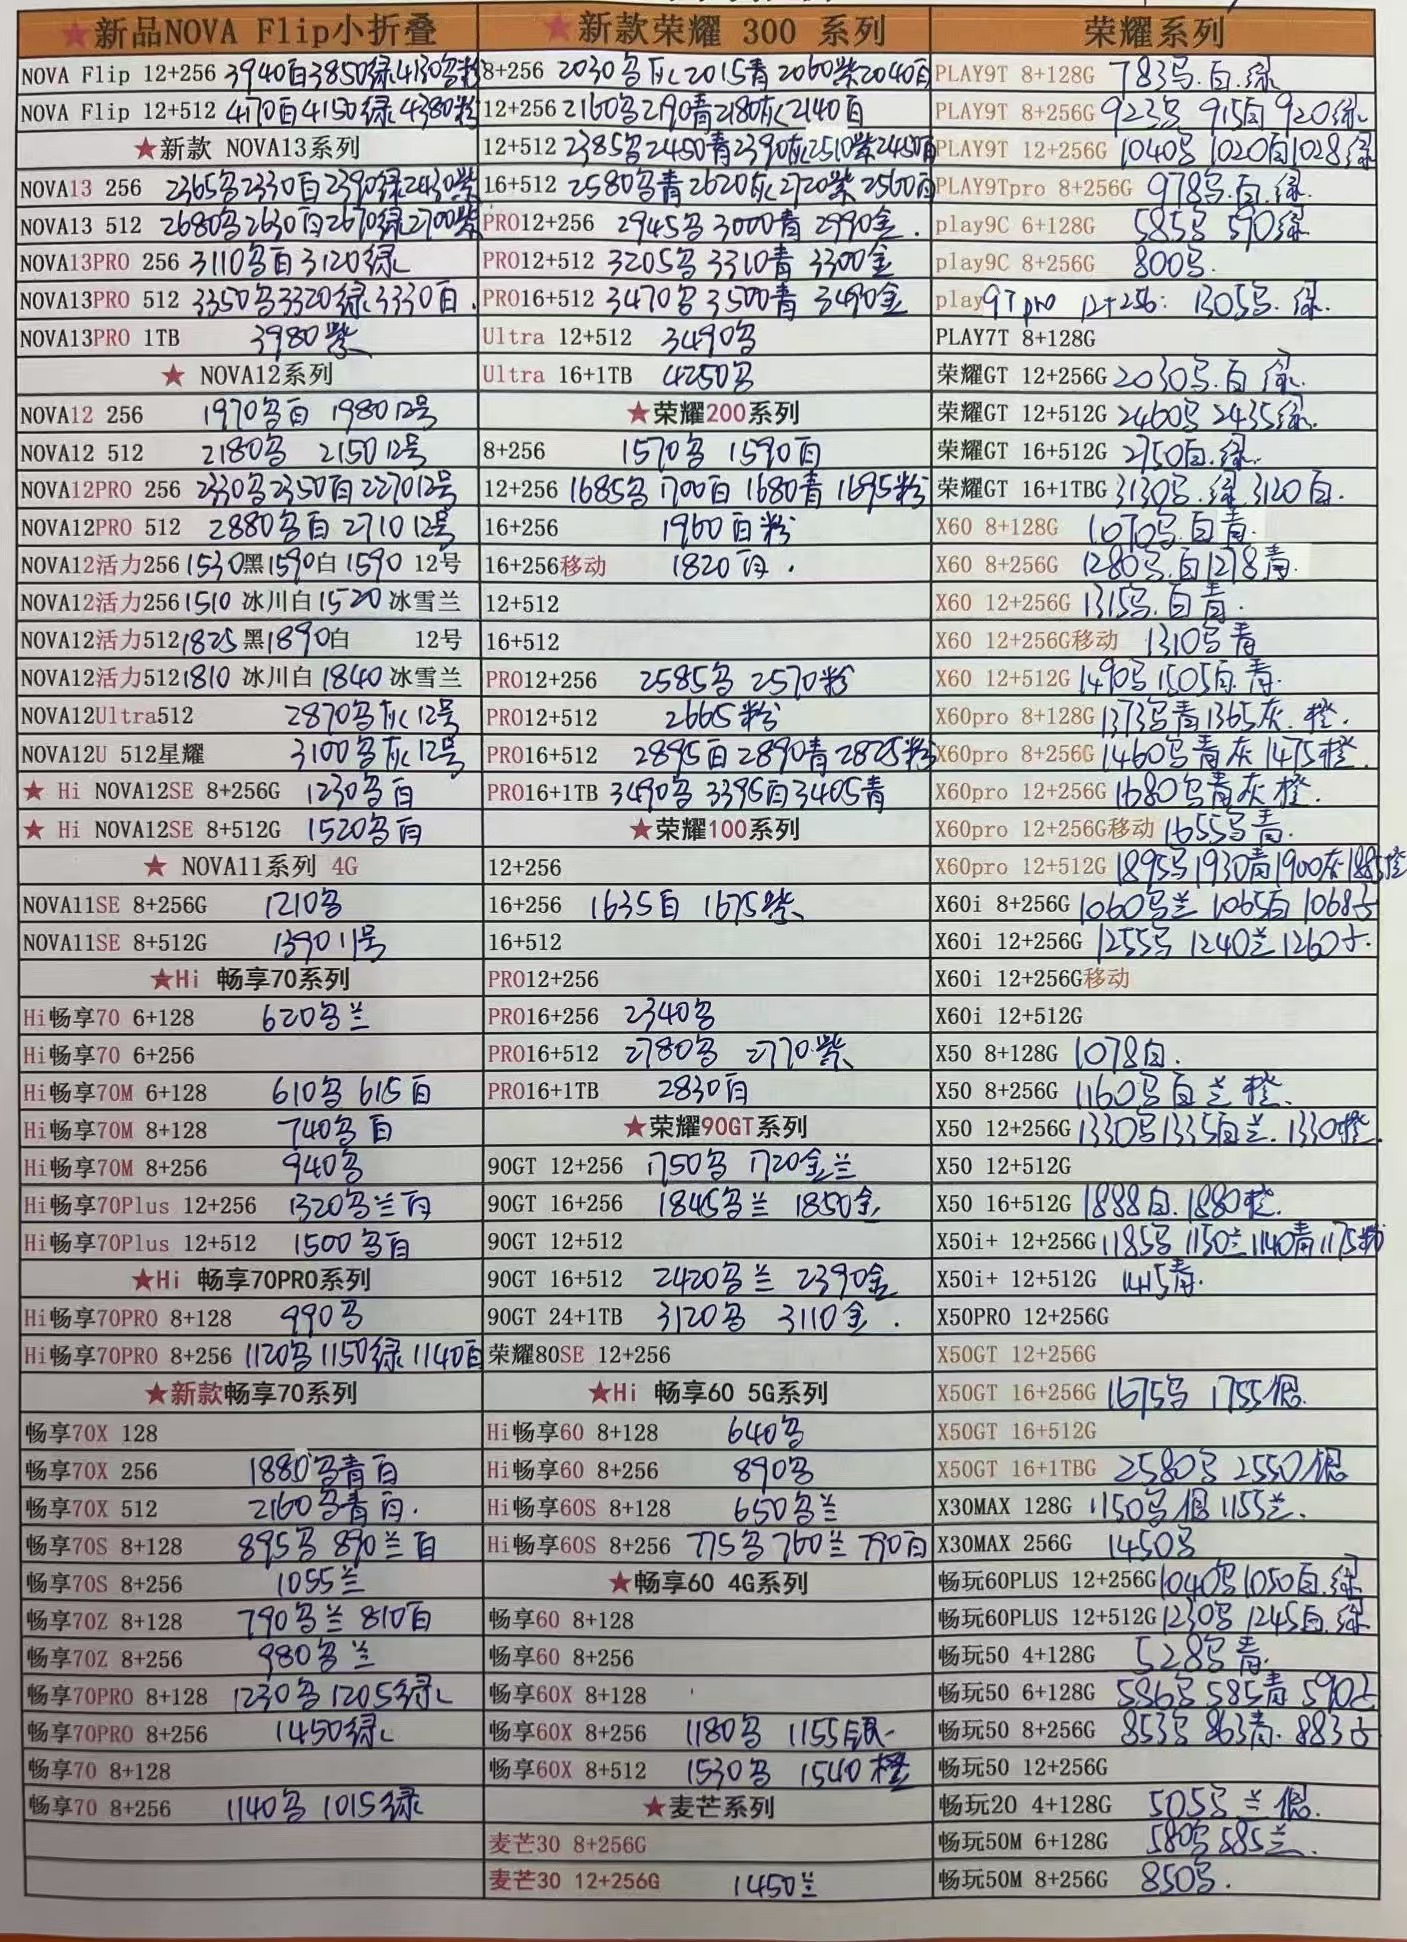 ★新品NOVA Flip小折叠
NOVA Flip 12+256 3940白3850绿4130另粉
NOVA Flip 12+512 4170白4150绿4380粉
★新款 NOVA13系列
NOVA13 256 2365另2330白2390绿2430紫
NOVA13 512 2680另2630白2670绿2700紫
NOVA13PRO 256 3110另白3120绿
NOVA13PRO 512 3350另3320绿3330白.
NOVA13PRO 1TB 3980紫
★ NOVA12系列
NOVA12 256 1970另白 1980 12号
NOVA12 512 2180另 2150 12号
NOVA12PRO 256 2330另2350白2270 12号
NOVA12PRO 512 2880另白 2710 12号
NOVA12活力256 1530黑1590白 1590 12号
NOVA12活力256 1510 冰川白1520 冰雪兰
NOVA12活力512 1825黑1890白 12号
NOVA12活力512 1810 冰川白 1840 冰雪兰
NOVA12Ultra512 2870另灰 12号
NOVA12U 512星耀 3100另灰12号
★ Hi NOVA12SE 8+256G 1230另白
★ Hi NOVA12SE 8+512G 1520另白
★ NOVA11系列 4G
NOVA11SE 8+256G 1210另
NOVA11SE 8+512G 1390 11号
★Hi 畅享70系列
Hi畅享70 6+128 620另兰
Hi畅享70 6+256
Hi畅享70M 6+128 610另 615白
Hi畅享70M 8+128 740另白
Hi畅享70M 8+256 940另
Hi畅享70Plus 12+256 1320另兰白
Hi畅享70Plus 12+512 1500另白
★Hi 畅享70PRO系列
Hi畅享70PRO 8+128 990另
Hi畅享70PRO 8+256 1120另1150绿1140白
★新款畅享70系列
畅享70X 128
畅享70X 256 1880另青白
畅享70X 512 2160另青白.
畅享70S 8+128 895另 890兰白
畅享70S 8+256 1055兰
畅享70Z 8+128 790另兰 810白
畅享70Z 8+256 980另兰
畅享70PRO 8+128 1230另 1205绿
畅享70PRO 8+256 1450绿
畅享70 8+128
畅享70 8+256 1140另 1015绿
★新款荣耀 300 系列
8+256 2030另灰2015青2060紫2040白
12+256 2160另2190青2180灰2140白
12+512 2385另2450青2390灰2510紫2450白
16+512 2580另青2620灰2720紫 2560白
PRO12+256 2945另 3000青 2990金.
PRO12+512 3205另 3310青 3300金
PRO16+512 3470另 3500青 3490金
Ultra 12+512 3490另
Ultra 16+1TB 4250另
★荣耀200系列
8+256 1570另 1590白
12+256 1685另 1700白 1680青 1695粉
16+256 1960白粉
16+256移动 1820白.
12+512
16+512
PRO12+256 2585另 2570粉
PRO12+512 2665粉
PRO16+512 2895白2890青2825粉
PRO16+1TB 3490另3395白3405青
★荣耀100系列
12+256
16+256 1635白 1675紫
16+512
PRO12+256
PRO16+256 2340另
PRO16+512 2780另 2770紫
PRO16+1TB 2830白
★荣耀90GT系列
90GT 12+256 1750另 1720金兰
90GT 16+256 1845另兰 1850金
90GT 12+512
90GT 16+512 2420另兰 2390金
90GT 24+1TB 3120另 3110金.
荣耀80SE 12+256
★Hi 畅享60 5G系列
Hi畅享60 8+128 640另
Hi畅享60 8+256 890另
Hi畅享60S 8+128 650另兰
Hi畅享60S 8+256 775另760兰790白
★畅享60 4G系列
畅享60 8+128
畅享60 8+256
畅享60X 8+128
畅享60X 8+256 1180另 1155银
畅享60X 8+512 1530另 1540橙
★麦芒系列
麦芒30 8+256G
麦芒30 12+256G 1450兰
荣耀系列
PLAY9T 8+128G 783另.白.绿
PLAY9T 8+256G 923另 915白920绿
PLAY9T 12+256G 1040另 1020白1028绿
PLAY9Tpro 8+256G 978另.白.绿
play9C 6+128G 585另 590绿
play9C 8+256G 800另.
play9Tpro 12+256: 1305另.绿.
PLAY7T 8+128G
荣耀GT 12+256G 2030另.白 绿.
荣耀GT 12+512G 2460另 2435绿.
荣耀GT 16+512G 2750白.绿.
荣耀GT 16+1TBG 3130另.绿 3120白.
X60 8+128G 1070另.白青.
X60 8+256G 1280另.白1278青.
X60 12+256G 1315另.白青.
X60 12+256G移动 1310另青
X60 12+512G 1490另1505白.青.
X60pro 8+128G 1373另青1365灰.橙.
X60pro 8+256G 1460另青灰1475橙.
X60pro 12+256G 1680另青灰橙.
X60pro 12+256G移动 1655另青.
X60pro 12+512G 1895另1930青1900灰1885橙
X60i 8+256G 1060另兰 1065白 1068
X60i 12+256G 1255另 1240兰1260
X60i 12+256G移动
X60i 12+512G
X50 8+128G 1078白.
X50 8+256G 1160另白兰橙.
X50 12+256G 1330另1335白兰.1330橙.
X50 12+512G
X50 16+512G 1888白.1880橙.
X50i+ 12+256G 1185另 1150兰1140青1175粉
X50i+ 12+512G 1415青.
X50PRO 12+256G
X50GT 12+256G
X50GT 16+256G 1675另 1755银.
X50GT 16+512G
X50GT 16+1TBG 2580另 2550银
X30MAX 128G 1150另银1155兰.
X30MAX 256G 1450另
畅玩60PLUS 12+256G 1040另1050白.绿
畅玩60PLUS 12+512G 1230另 1245白.绿
畅玩50 4+128G 528另青.
畅玩50 6+128G 586另585青590
畅玩50 8+256G 853另 863青.883
畅玩50 12+256G
畅玩20 4+128G 505另兰银.
畅玩50M 6+128G 580另585兰.
畅玩50M 8+256G 850另.